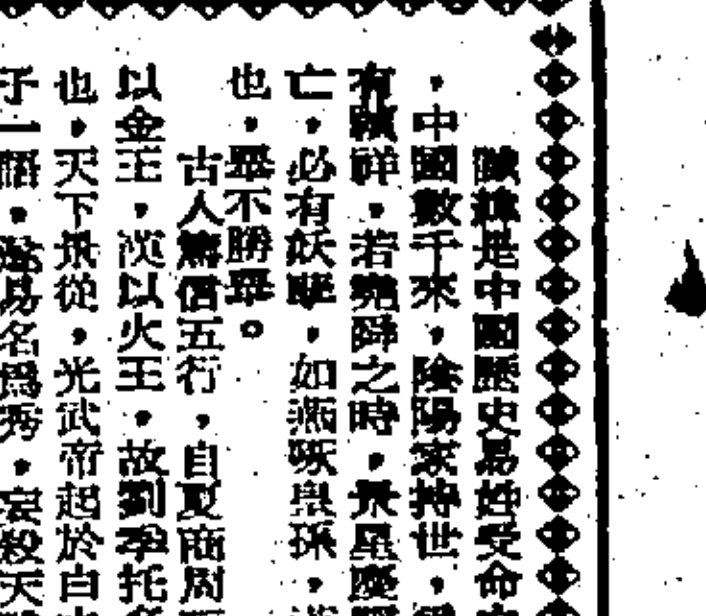 讖緯是中國歷史易姓受命
，中國數千來，陰陽家持世，
有禎祥，若堯舜之時，景星慶
亡，必有妖孽，如燕啄皇孫，
也，舉不勝舉。
古人篤信五行，自夏商周
以金王，漢以火王，故劉季托
也，天下景從，光武帝起於白
子一語，遂易名為秀，哀